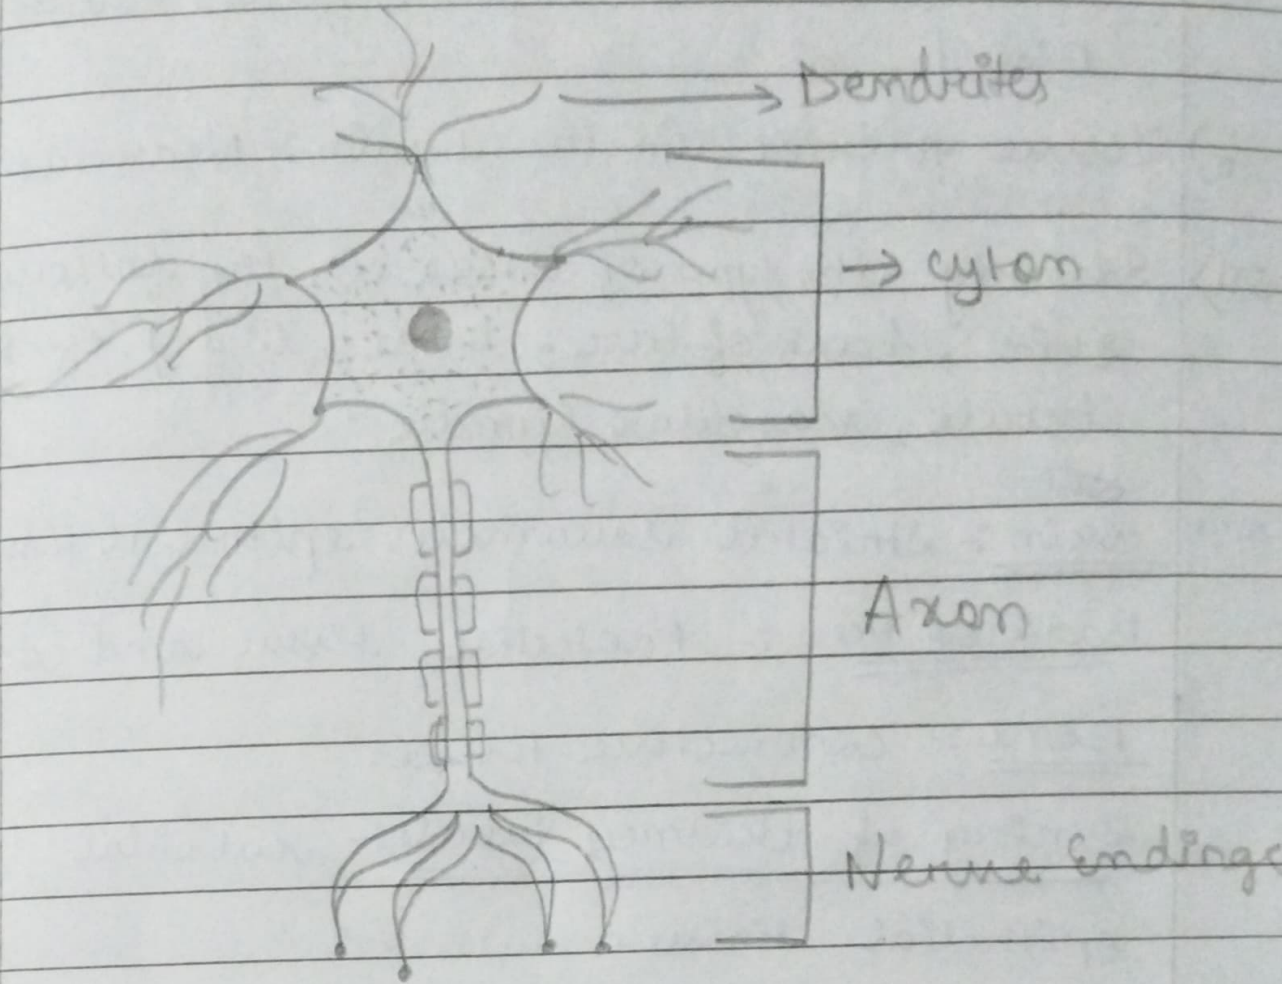 Dendrites
cyton
Axon
Nerve Endings